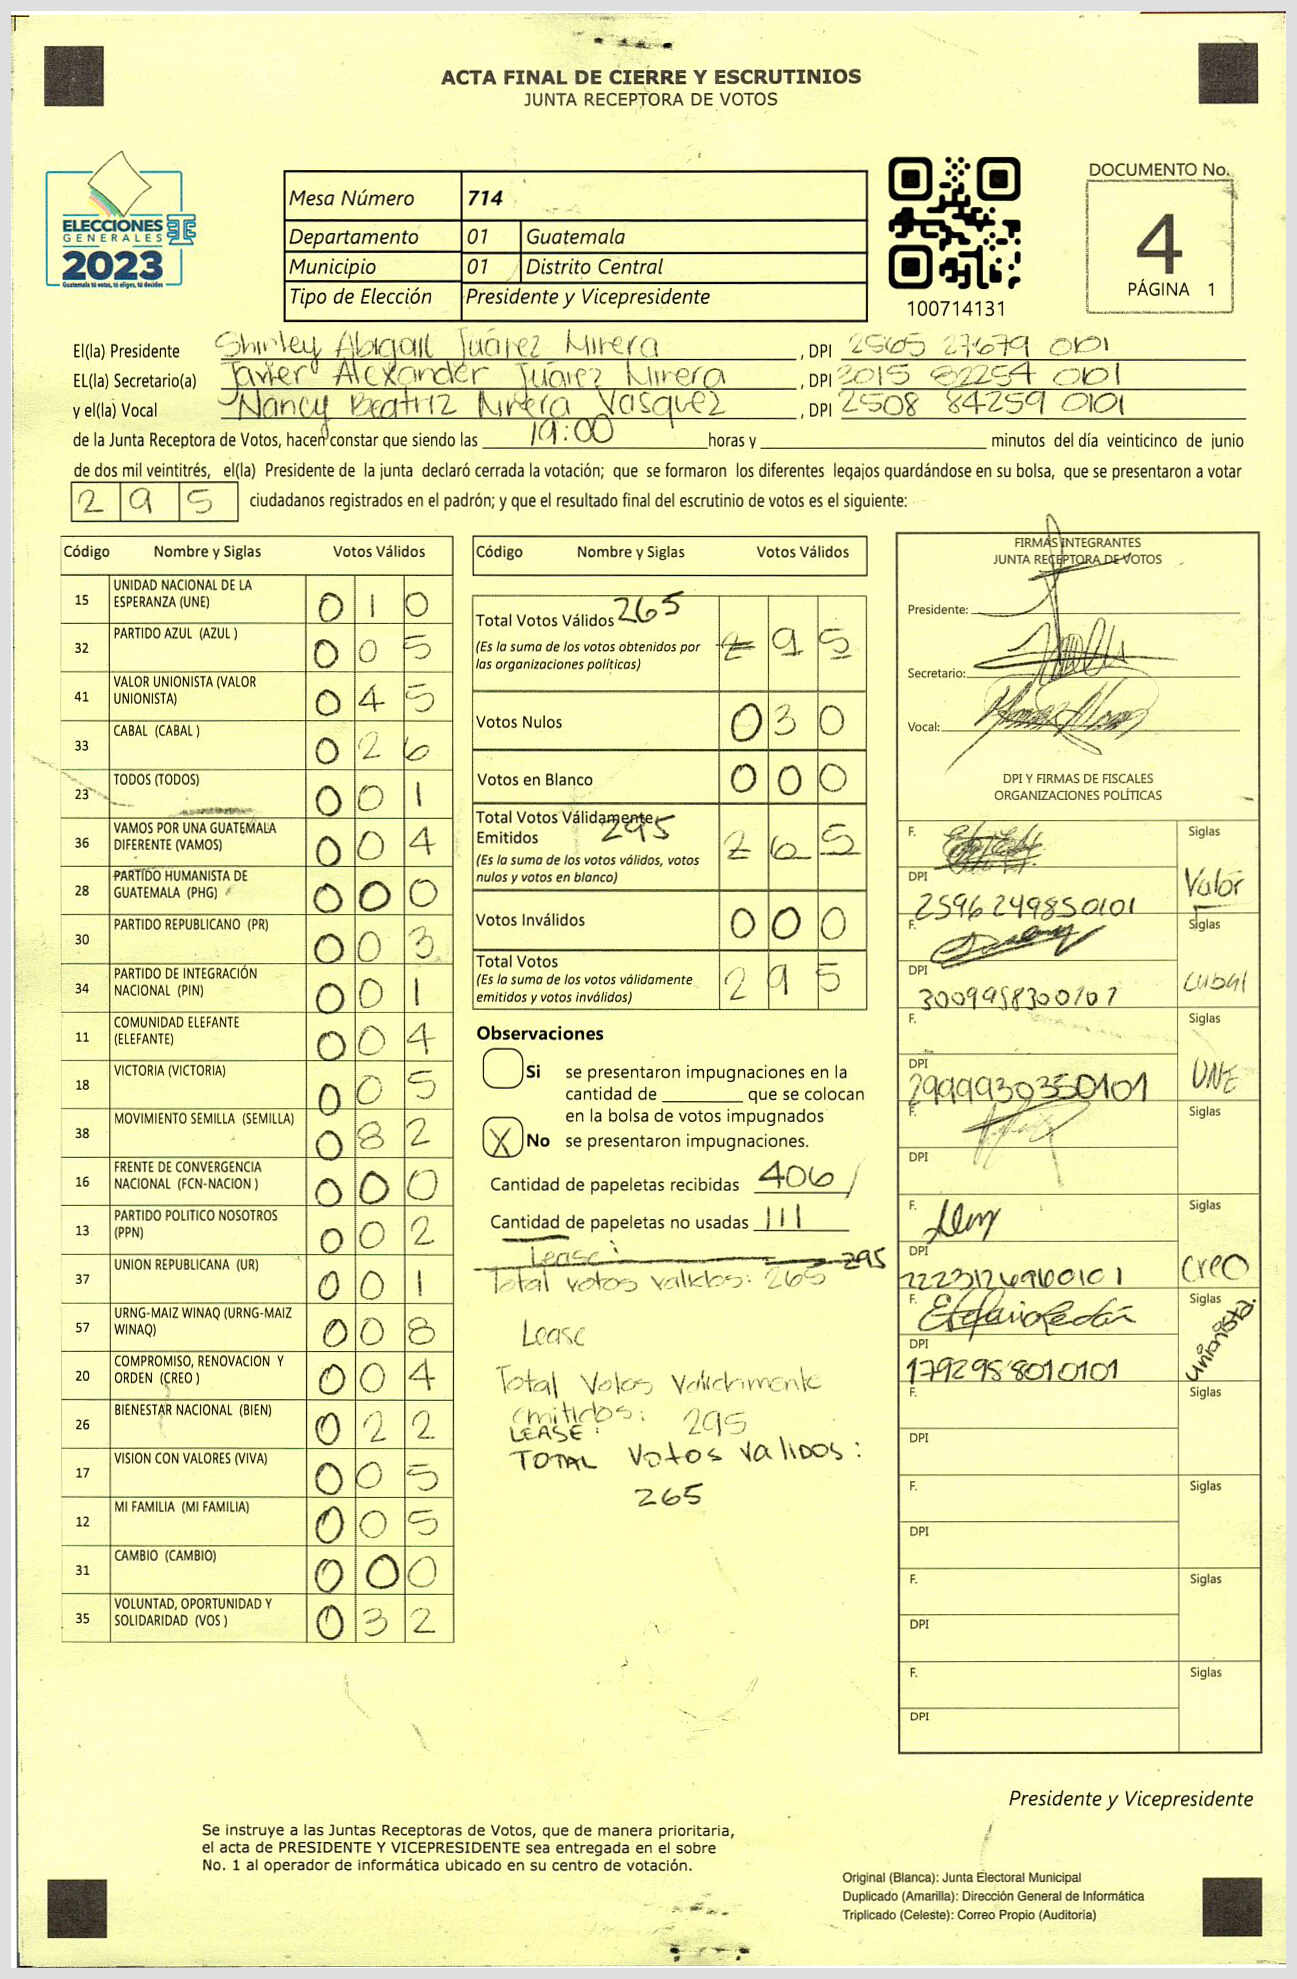 ACTA FINAL DE CIERRE Y ESCRUTINIOS
JUNTA RECEPTORA DE VOTOS
ELECCIONES
GENERALES
2023
Guatemala tú votas, tú eliges, tú decides
Mesa Número 714
Departamento 01 Guatemala
Municipio 01 Distrito Central
Tipo de Elección Presidente y Vicepresidente
100714131
DOCUMENTO No.
4
PÁGINA 1
El(la) Presidente Shirley Abigail Juárez Mirera, DPI 2565 27679 0101
EL(la) Secretario(a) Javier Alexander Juárez Mirera, DPI 3015 82254 0101
y el(la) Vocal Nancy Beatriz Mirera Vasquez, DPI 2508 84259 0101
de la Junta Receptora de Votos, hacen constar que siendo las 19:00 horas y minutos del día veinticinco de junio
de dos mil veintitrés, el(la) Presidente de la junta declaró cerrada la votación; que se formaron los diferentes legajos guardándose en su bolsa, que se presentaron a votar
295 ciudadanos registrados en el padrón; y que el resultado final del escrutinio de votos es el siguiente:
Código Nombre y Siglas Votos Válidos
15 UNIDAD NACIONAL DE LA ESPERANZA (UNE) 010
32 PARTIDO AZUL (AZUL ) 005
41 VALOR UNIONISTA (VALOR UNIONISTA) 045
33 CABAL (CABAL ) 026
23 TODOS (TODOS) 001
36 VAMOS POR UNA GUATEMALA DIFERENTE (VAMOS) 004
28 PARTIDO HUMANISTA DE GUATEMALA (PHG) 000
30 PARTIDO REPUBLICANO (PR) 003
34 PARTIDO DE INTEGRACIÓN NACIONAL (PIN) 001
11 COMUNIDAD ELEFANTE (ELEFANTE) 004
18 VICTORIA (VICTORIA) 005
38 MOVIMIENTO SEMILLA (SEMILLA) 082
16 FRENTE DE CONVERGENCIA NACIONAL (FCN-NACION ) 000
13 PARTIDO POLITICO NOSOTROS (PPN) 002
37 UNION REPUBLICANA (UR) 001
57 URNG-MAIZ WINAQ (URNG-MAIZ WINAQ) 008
20 COMPROMISO, RENOVACION Y ORDEN (CREO ) 004
26 BIENESTAR NACIONAL (BIEN) 022
17 VISION CON VALORES (VIVA) 005
12 MI FAMILIA (MI FAMILIA) 005
31 CAMBIO (CAMBIO) 000
35 VOLUNTAD, OPORTUNIDAD Y SOLIDARIDAD (VOS ) 032
Código Nombre y Siglas Votos Válidos
Total Votos Válidos 265 295
(Es la suma de los votos obtenidos por
las organizaciones políticas)
Votos Nulos 030
Votos en Blanco 000
Total Votos Válidamente
Emitidos 295 265
(Es la suma de los votos válidos, votos
nulos y votos en blanco)
Votos Inválidos 000
Total Votos 295
(Es la suma de los votos válidamente
emitidos y votos inválidos)
Observaciones
Si se presentaron impugnaciones en la
cantidad de que se colocan
en la bolsa de votos impugnados
X No se presentaron impugnaciones.
Cantidad de papeletas recibidas 406
Cantidad de papeletas no usadas 111
Lease: 295
Total votos validos: 265
Lease
Total Votos Validamente
emitidos: 295
LEASE:
TOTAL Votos VALIDOS:
265
FIRMAS INTEGRANTES
JUNTA RECEPTORA DE VOTOS
Presidente:
Secretario:
Vocal:
DPI Y FIRMAS DE FISCALES
ORGANIZACIONES POLÍTICAS
F. Siglas
DPI Valor
2596249850101
F. Siglas
DPI Cabal
F. Siglas
DPI UNE
2999930350101
F. Siglas
DPI
F. Siglas
DPI Creo
F. Siglas
DPI Unionista.
1792988010101
F. Siglas
DPI
F. Siglas
DPI
F. Siglas
DPI
F. Siglas
DPI
Presidente y Vicepresidente
Se instruye a las Juntas Receptoras de Votos, que de manera prioritaria,
el acta de PRESIDENTE Y VICEPRESIDENTE sea entregada en el sobre
No. 1 al operador de informática ubicado en su centro de votación.
Original (Blanca): Junta Electoral Municipal
Duplicado (Amarilla): Dirección General de Informática
Triplicado (Celeste): Correo Propio (Auditoria)